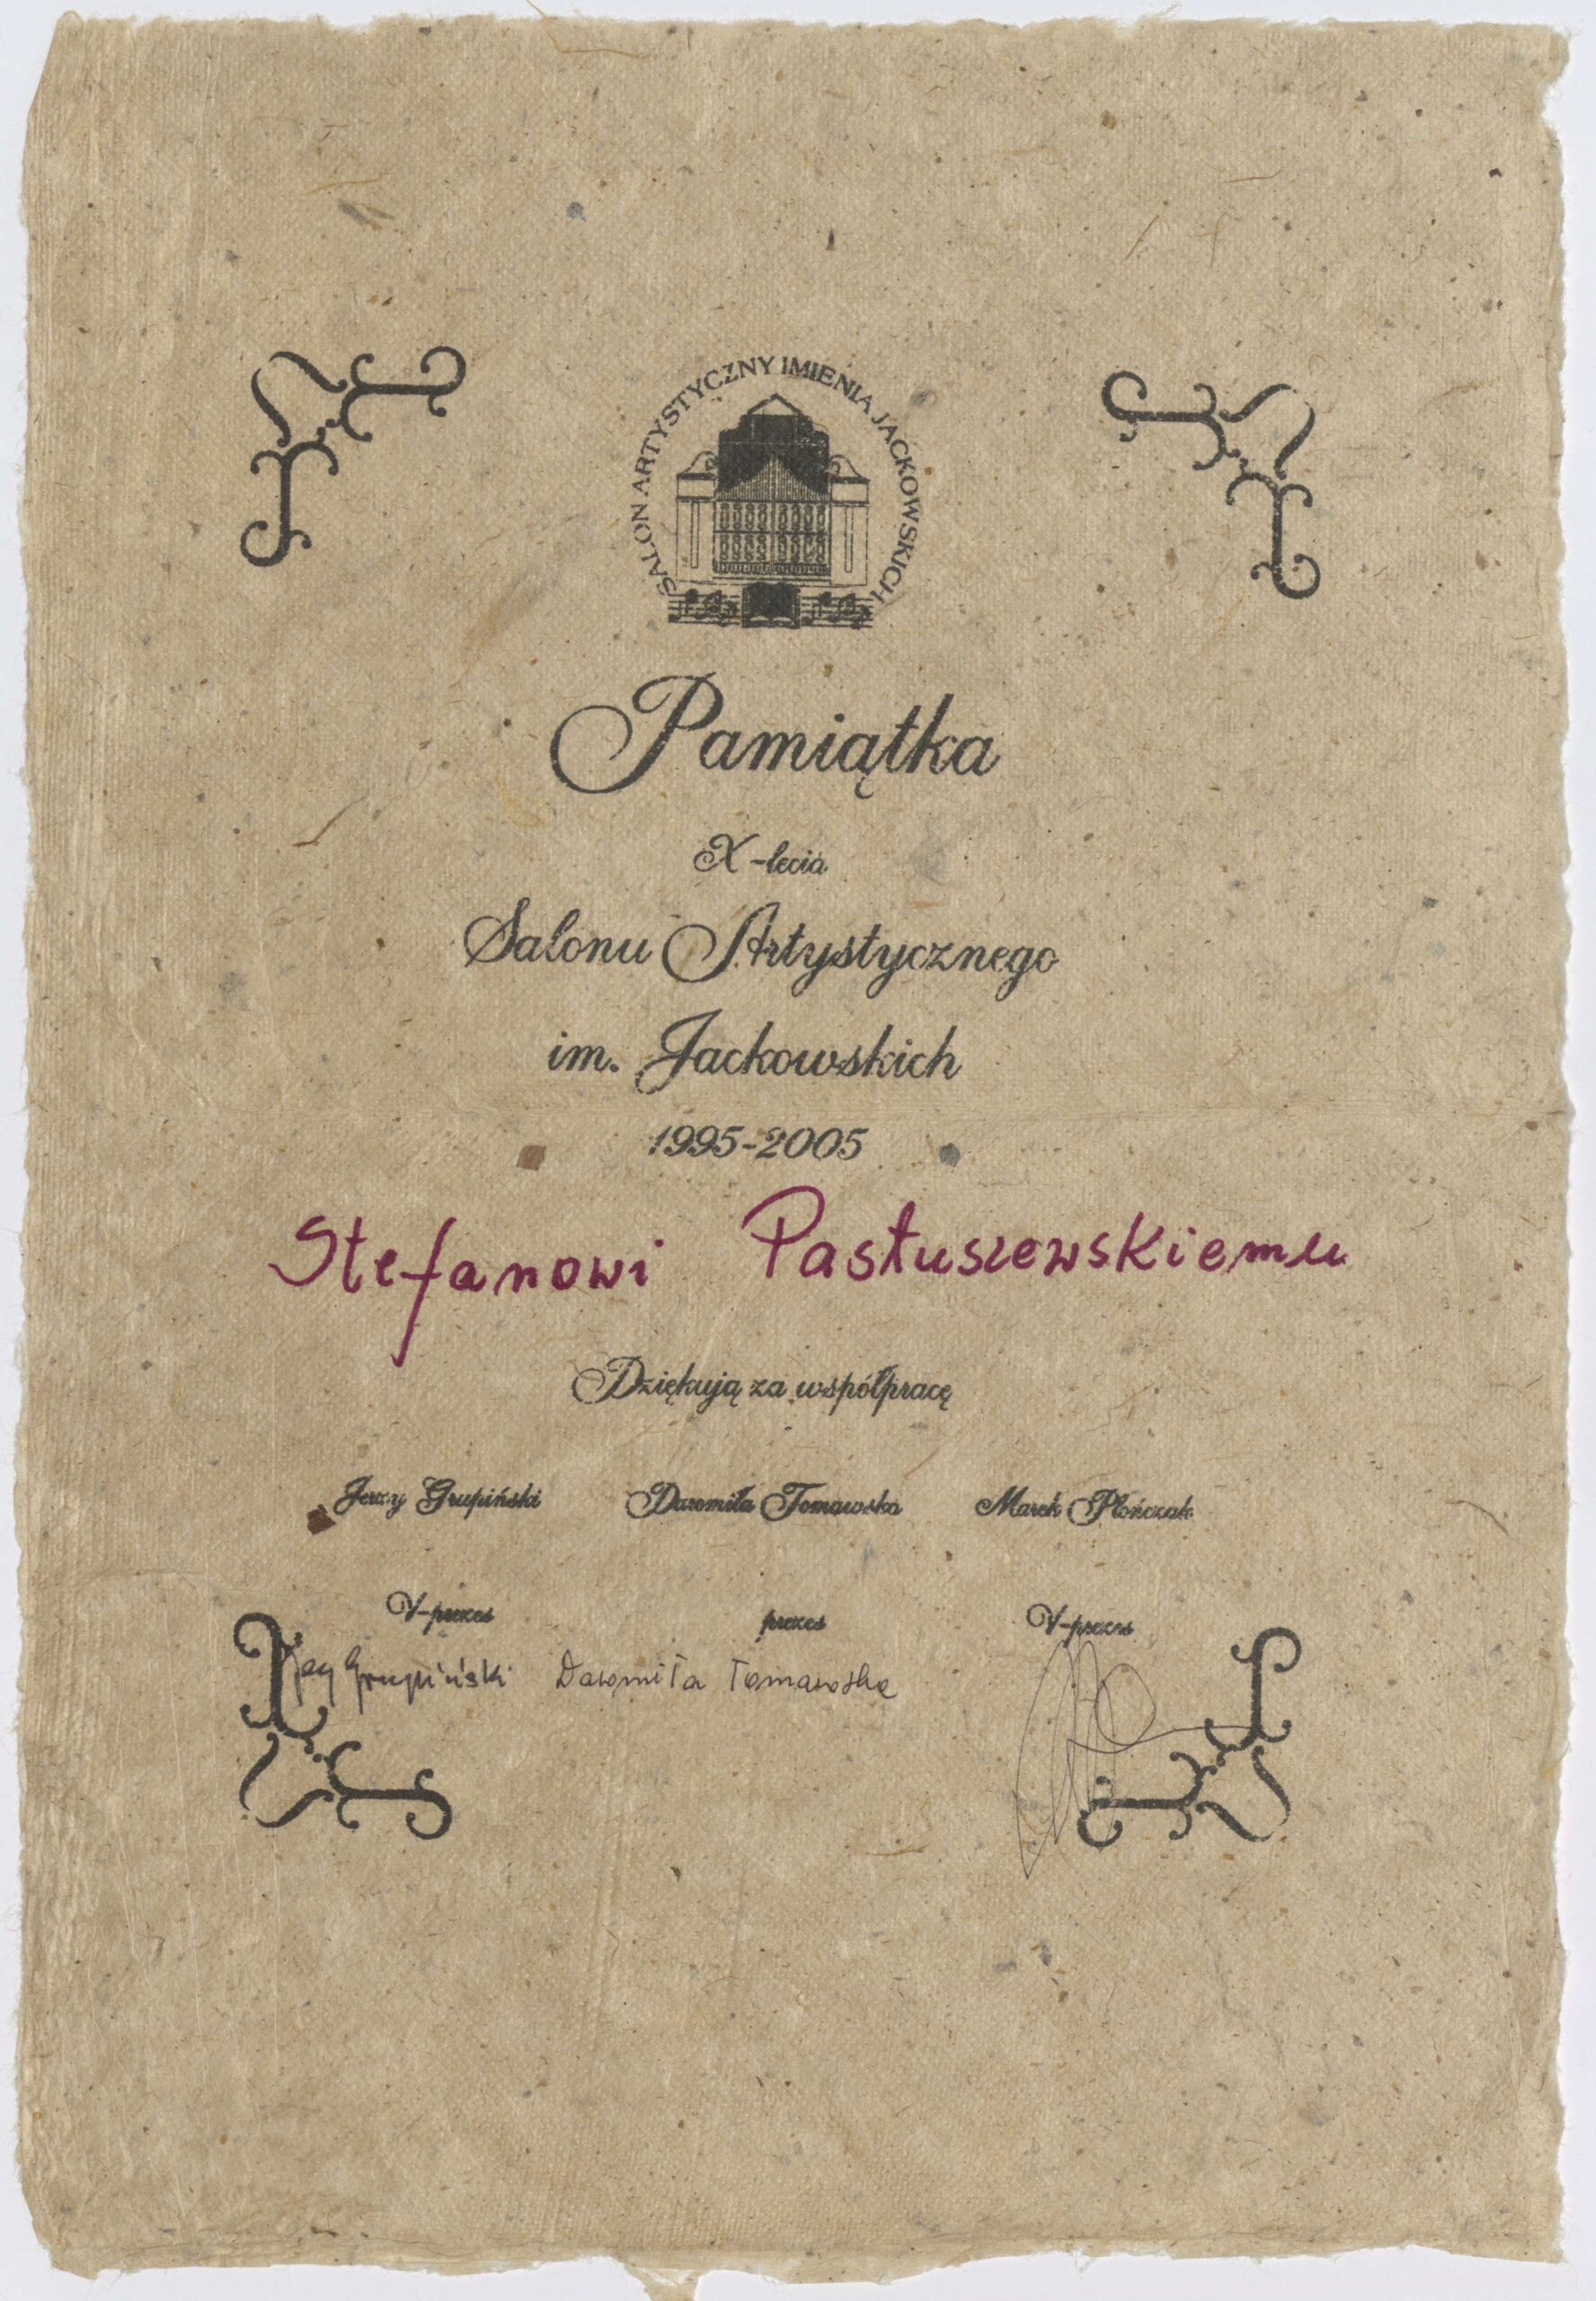 SALON ARTYSTYCZNY IMIENIA JACKOWSKICH
Pamiątka
X-lecia
Salonu Artystycznego
im. Jackowskich
1995-2005
Stefanowi Pastuszewskiemu
Dziękują za współpracę
Jerzy Grupiński Daromiła Tomawska Marek Płończak
V-prezes prezes V-prezes
Grupiński Daromiła Tomawska